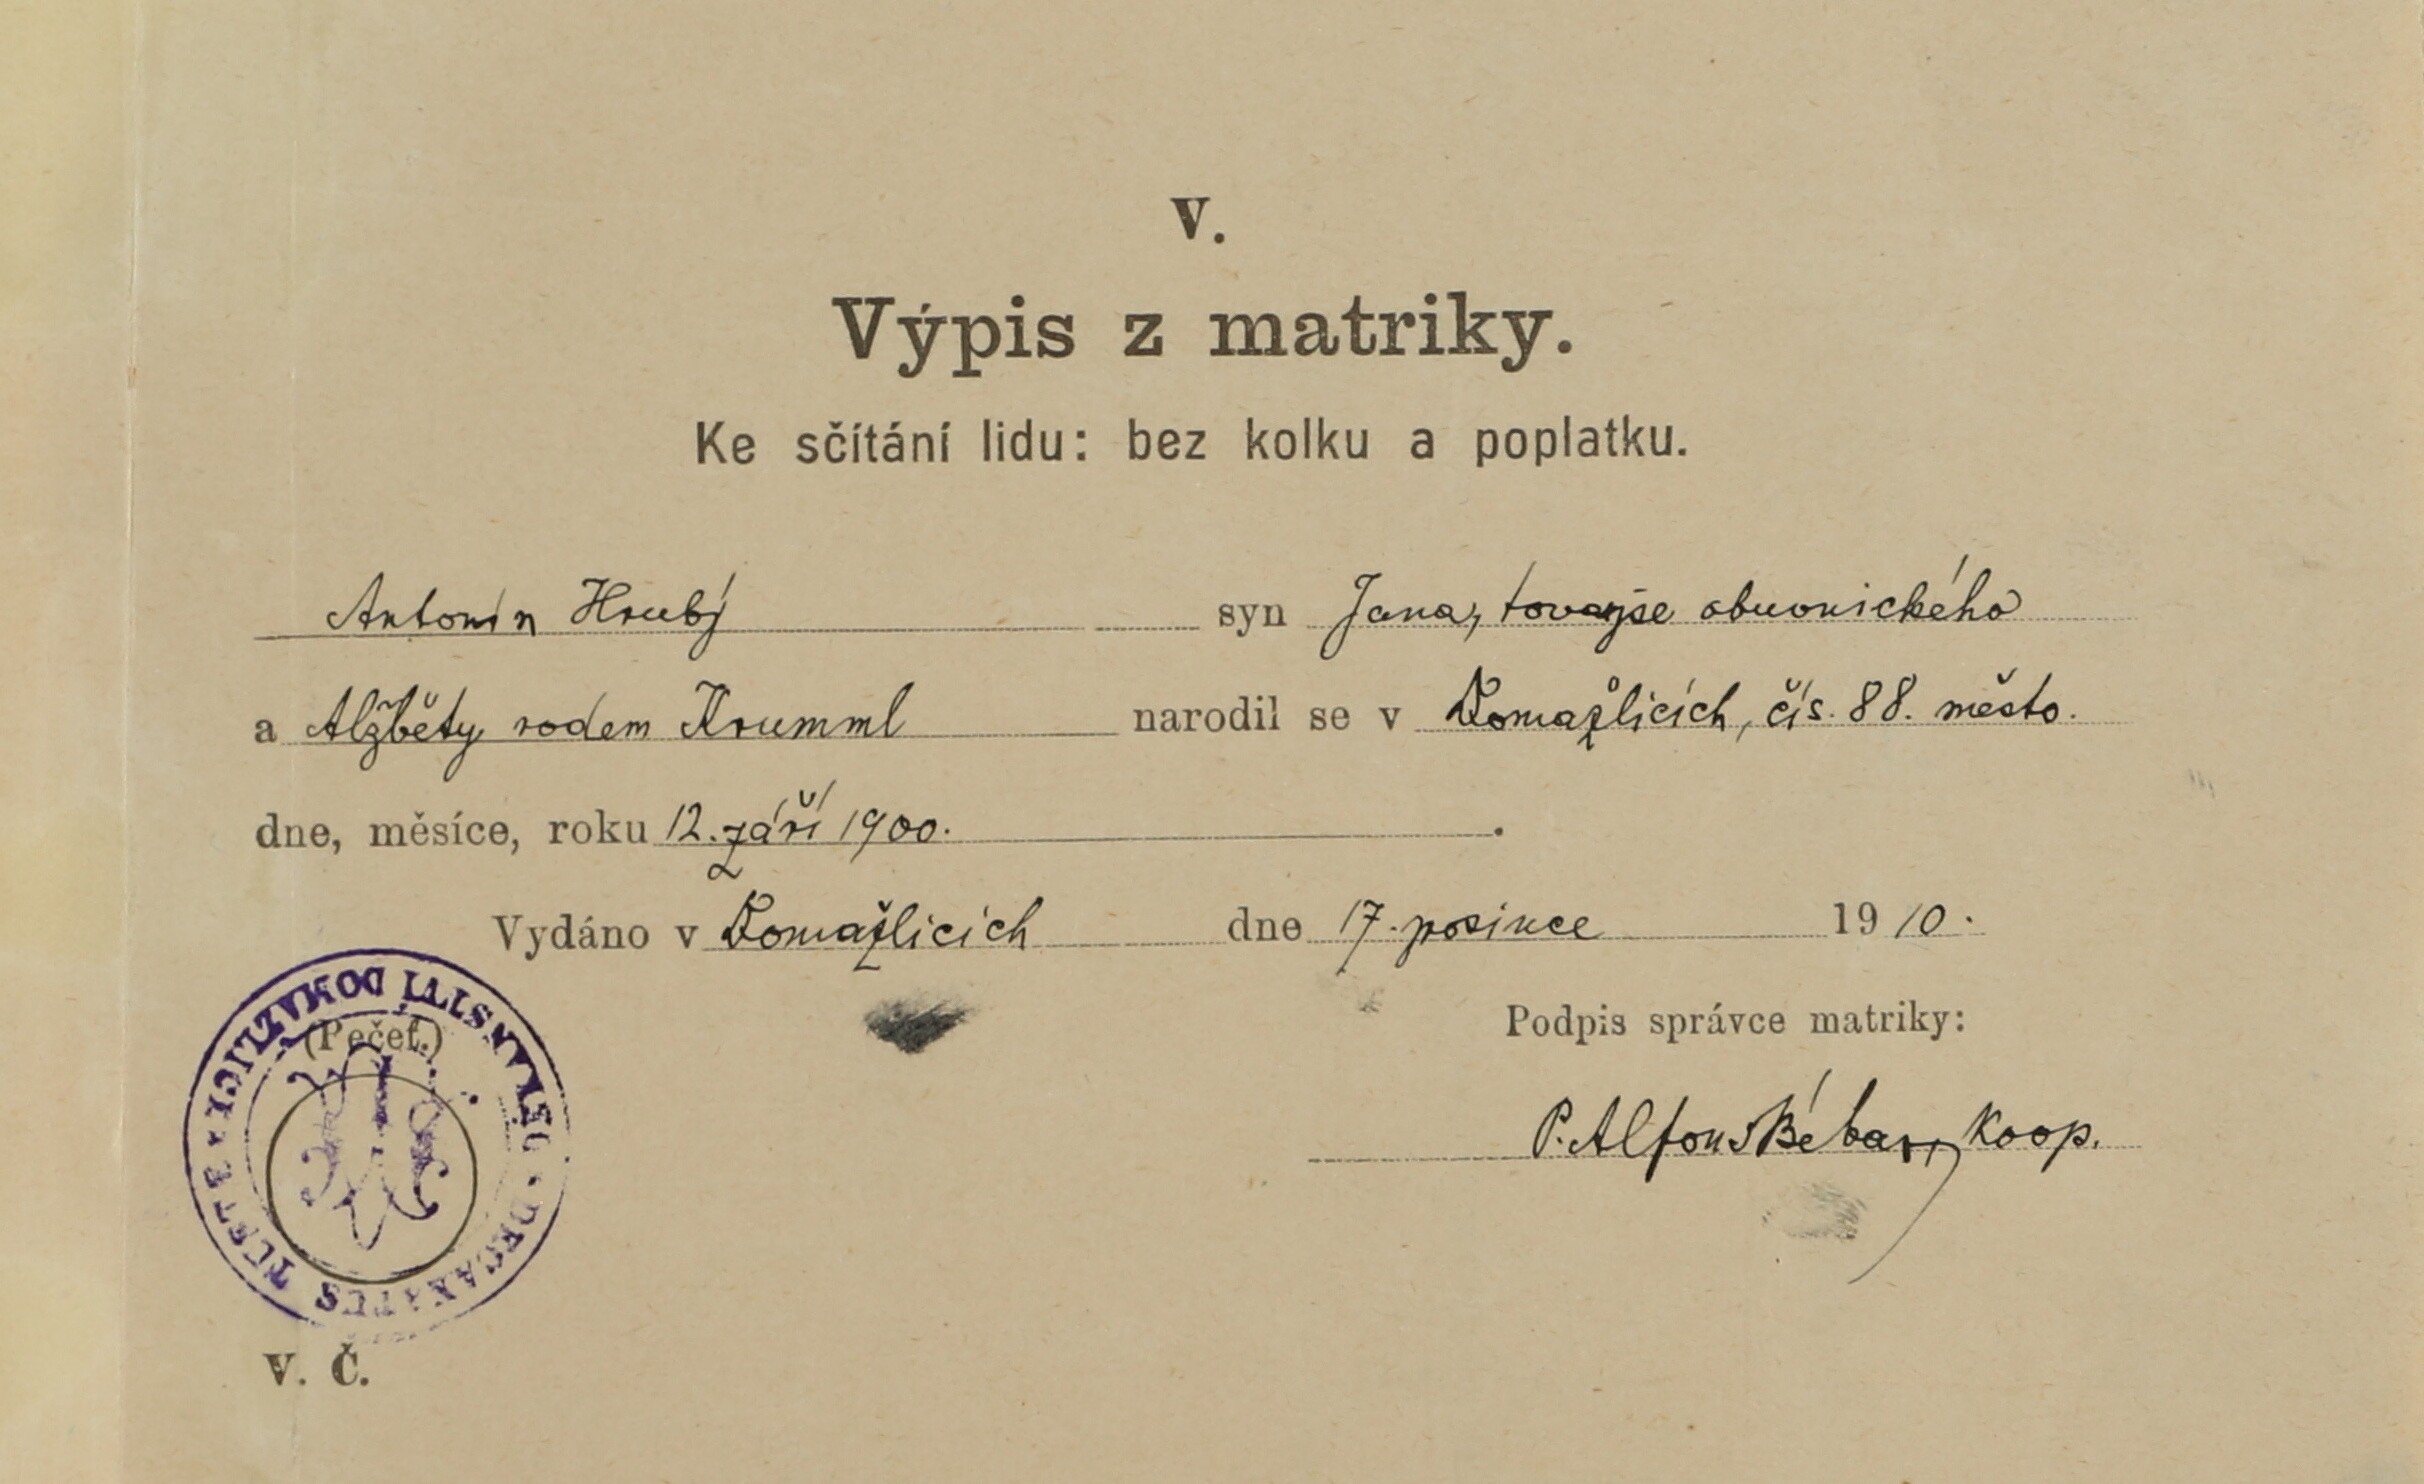 V.
Výpis z matriky.
Ke sčítání lidu: bez kolku a poplatku.
Antonín Hrubý syn Jana, tovaryše obuvnického
a Alžběty rodem Krumml narodil se v Domažlicích, čís. 88. město.
dne, měsíce, roku 12. září 1900.
Vydáno v Domažlicích dne 17. prosince 1910.
(Pečeť.)
Podpis správce matriky:
P. Alfons Bébar, koop.
DĚKANSTVÍ DOMAŽLICE
DECANATUS TUSTA
V. Č.